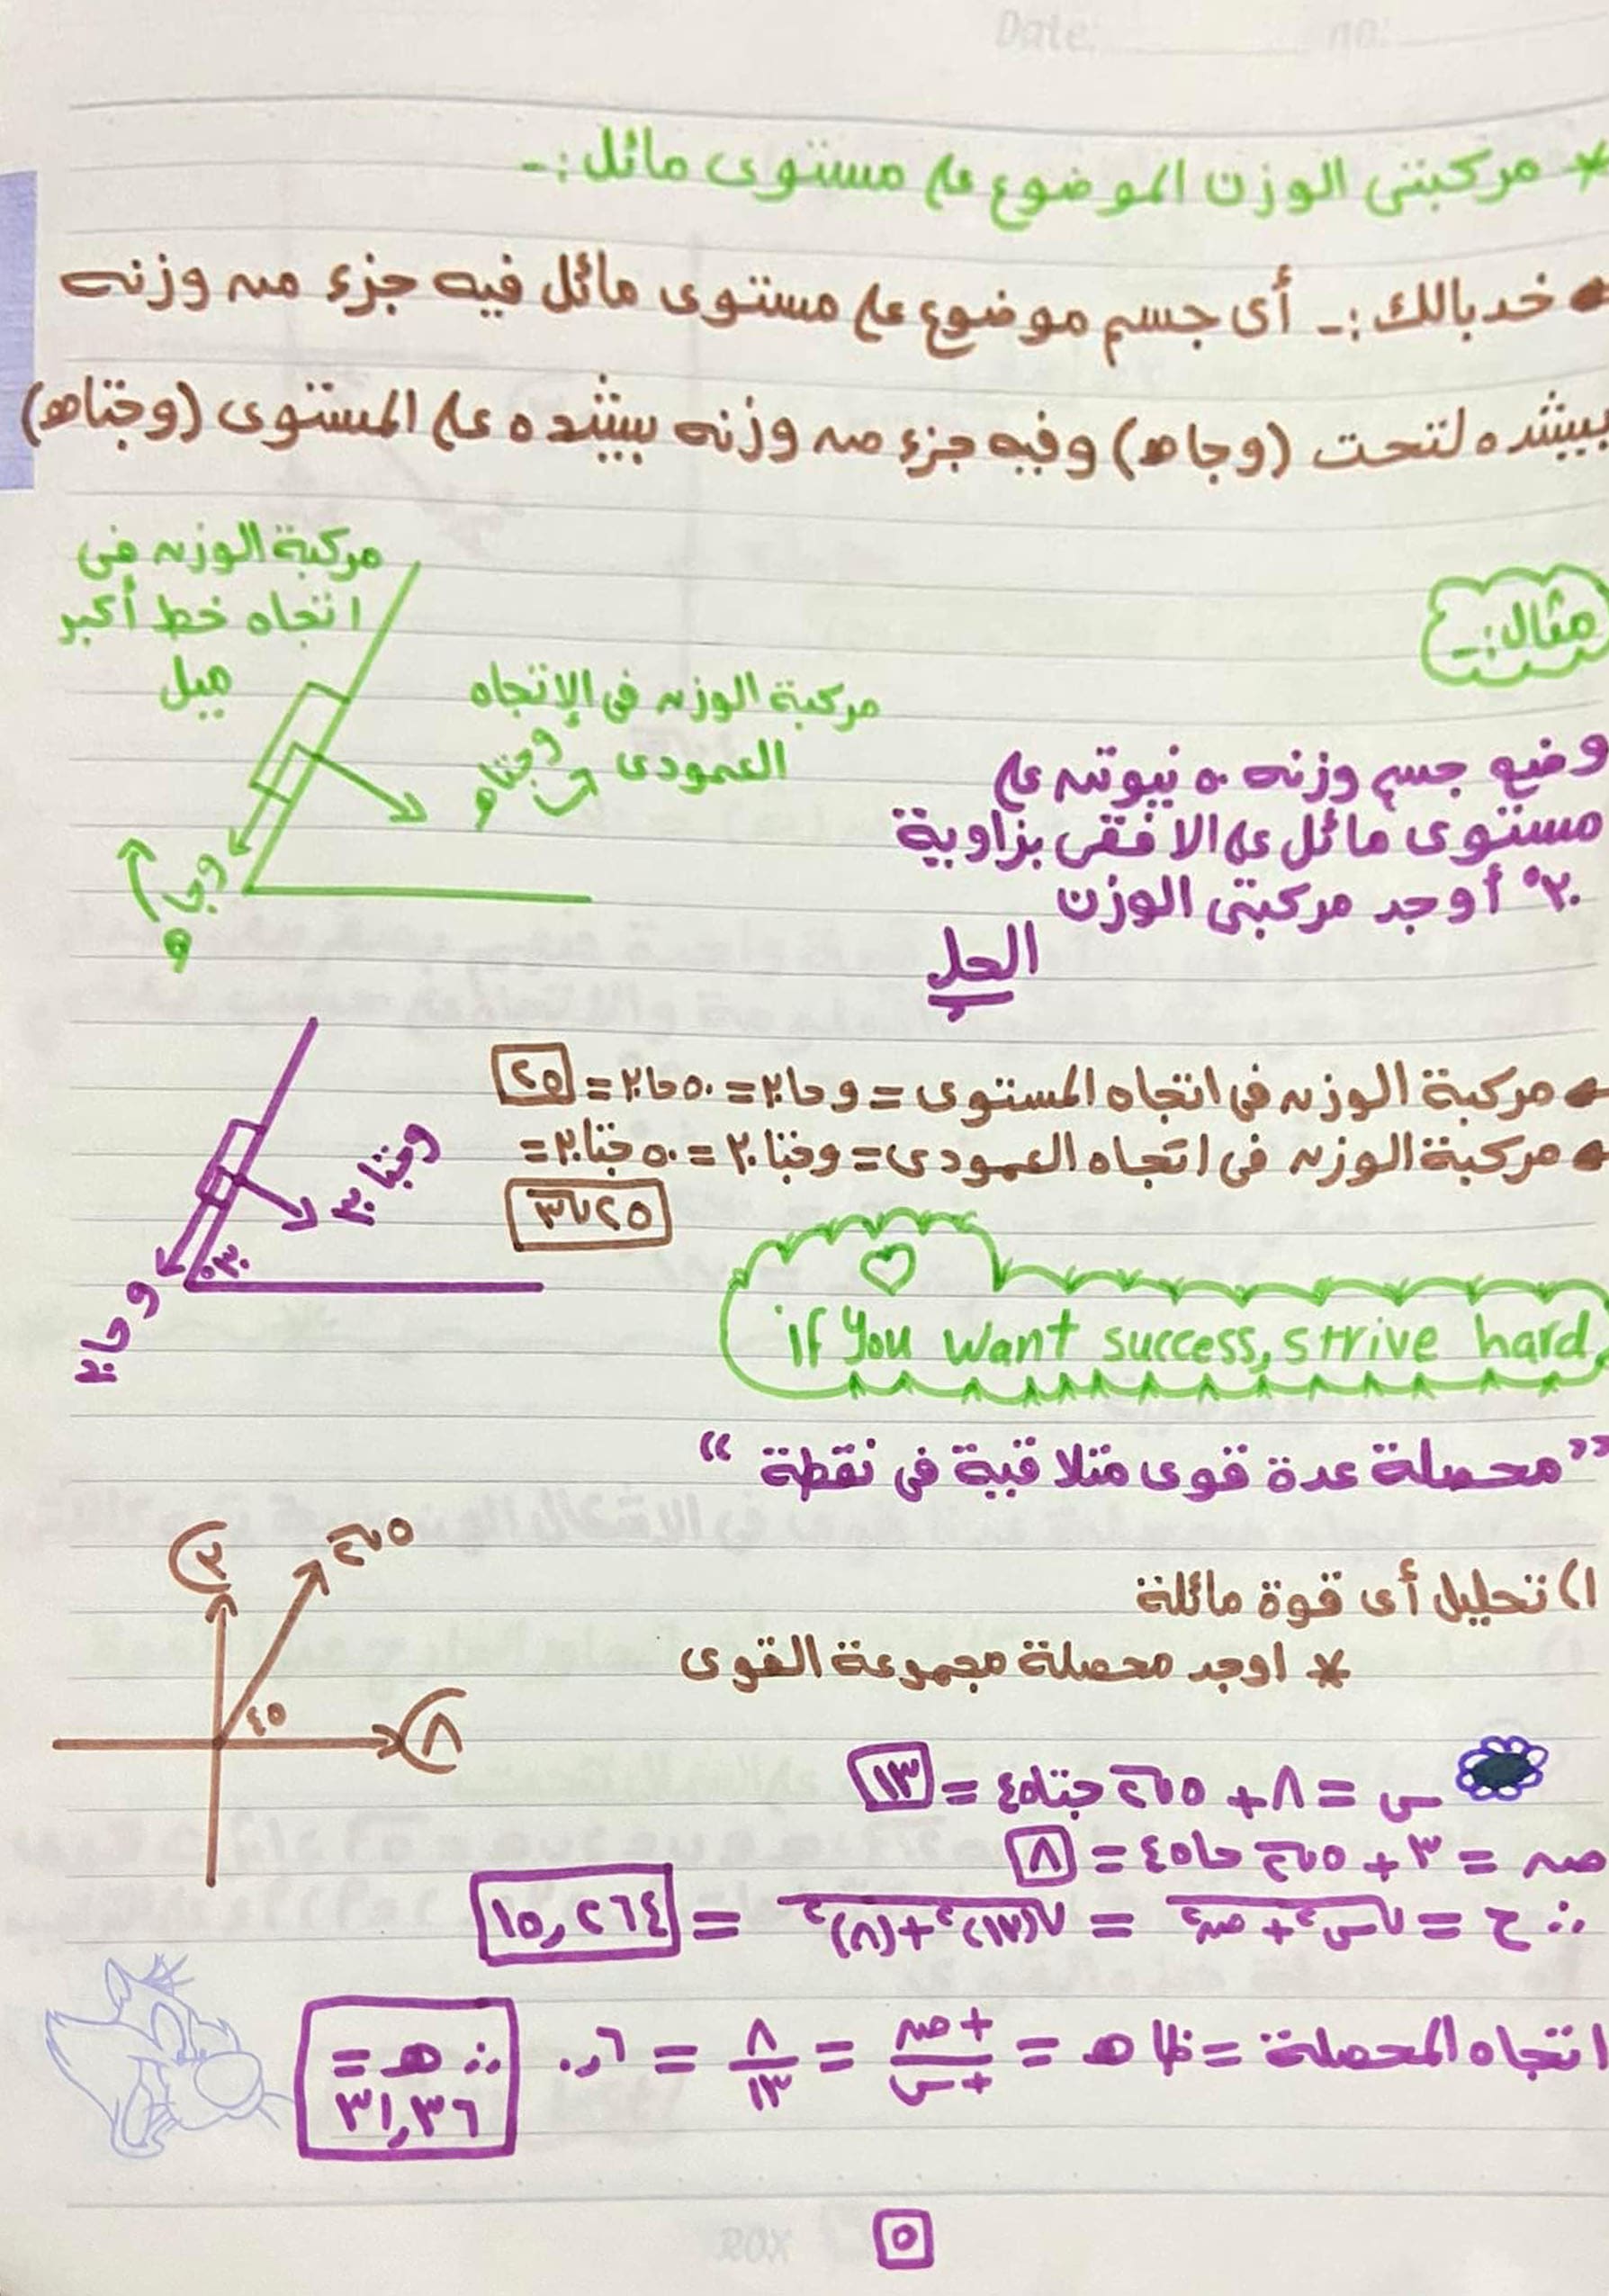 Date: no:
* مركبتى الوزن الموضوع على مستوى مائل :-
خد بالك :- أى جسم موضوع على مستوى مائل فيه جزء من وزنه
بيشده لتحت (وجاه) وفيه جزء من وزنه بيشده على المستوى (وجتاه)
مركبة الوزن فى
اتجاه خط أكبر
ميل
مركبة الوزن فى الإتجاه
العمودى
وجتاه
و
وجاه
و
مثال :-
وضع جسم وزنه ٥٠ نيوتن على
مستوى مائل على الافقى بزاوية
٣٠° أوجد مركبتى الوزن
الحل
مركبة الوزن فى اتجاه المستوى = و حا٣٠ = ٥٠ حا٣٠ = ٢٥
مركبة الوزن فى اتجاه العمودى = وجتا٣٠ = ٥٠ جتا٣٠ =
٢٥√٣
وجتا ٣٠
٣٠°
و حا٣٠
if You want success, strive hard
”محصلة عدة قوى متلاقية فى نقطة“
١) تحليل أى قوة مائلة
* اوجد محصلة مجموعة القوى
٣
٥√٢
٤٥
٨
س = ٨ + ٥√٢ جتا٤٥ = ١٣
ص = ٣ + ٥√٢ حا٤٥ = ٨
∴ ح = √س² + ص² = √(١٣)² + (٨)² = ١٥,٢٦٤
اتجاه المحصلة = ظا ه = +ص/+س = ٨/١٣ = ٠,٦ ∴ ه =
٣١,٣٦
ROX
٥